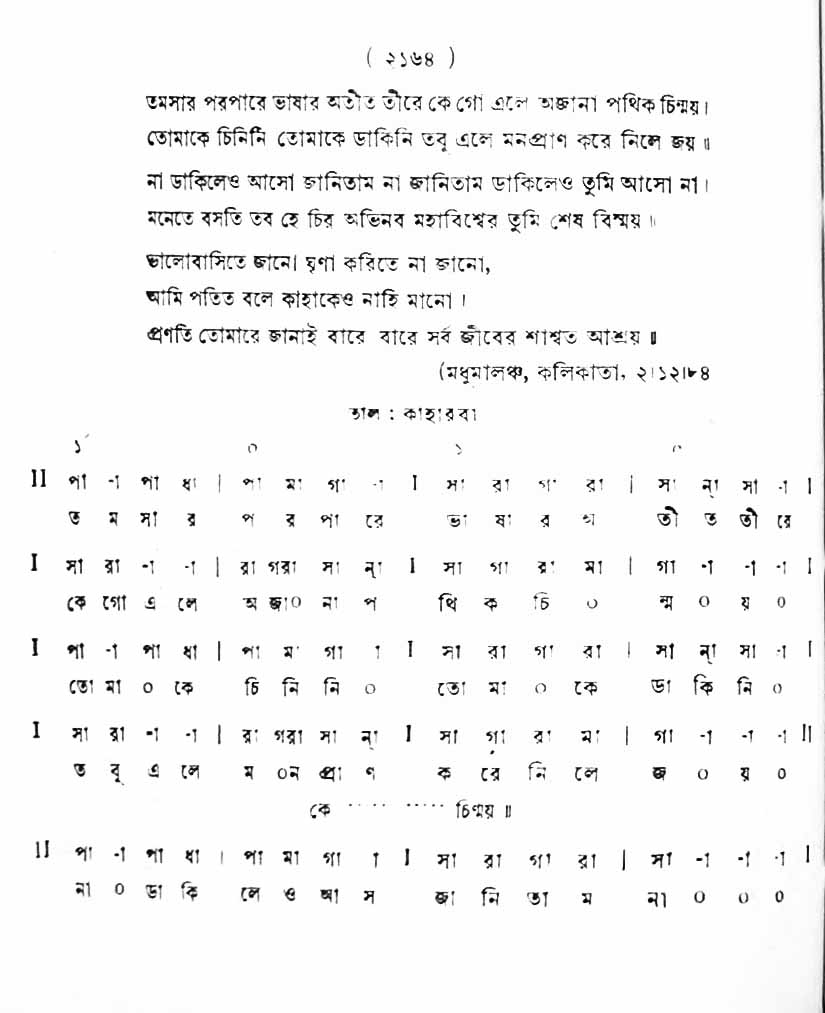 ( ২১৬৪ )
তমসার পরপারে ভাষার অতীত তীরে কে গো এলে অজানা পথিক চিন্ময়।
তোমাকে চিনিনি তোমাকে ডাকিনি তবু এলে মনপ্রাণ করে নিলে জয় ॥
না ডাকিলেও আসো জানিতাম না জানিতাম ডাকিলেও তুমি আসো না।
মনেতে বসতি তব হে চির অভিনব মহাবিশ্বের তুমি শেষ বিস্ময় ॥
ভালোবাসিতে জানো ঘৃণা করিতে না জানো,
আমি পতিত বলে কাহাকেও নাহি মানো।
প্রণতি তোমারে জানাই বারে বারে সর্ব জীবের শাশ্বত আশ্রয় ॥
(মধুমালঞ্চ, কলিকাতা, ২।১২।৮৪
তাল : কাহারবা
১´ ০ ১ ০
II পা -া পা ধা | পা মা গা -া I সা রা গা রা | সা ন্া সা -া I
ত ম সা র প র পা রে ভা ষা র অ তী ত তী রে
I সা রা -া -া | রা গরা সা ন্া I সা গা রা মা | গা -া -া -া I
কে গো এ লে অ জা০ না প থি ক চি ০ ন্ম ০ য় ০
I পা -া পা ধা | পা মা গা া I সা রা গা রা | সা ন্া সা -া I
তো মা ০ কে চি নি নি ০ তো মা ০ কে ডা কি নি ০
I সা রা -া -া | রা গরা সা ন্া I সা গা রা মা | গা -া -া -া II
ত বু এ লে ম ০ন প্রা ণ ক রে নি লে জ ০ য় ০
কে ···· ····· চিন্ময় ॥
II পা -া পা ধা | পা মা গা া I সা রা গা রা | সা -া -া -া I
না ০ ডা কি লে ও আ স জা নি তা ম না ০ ০ ০